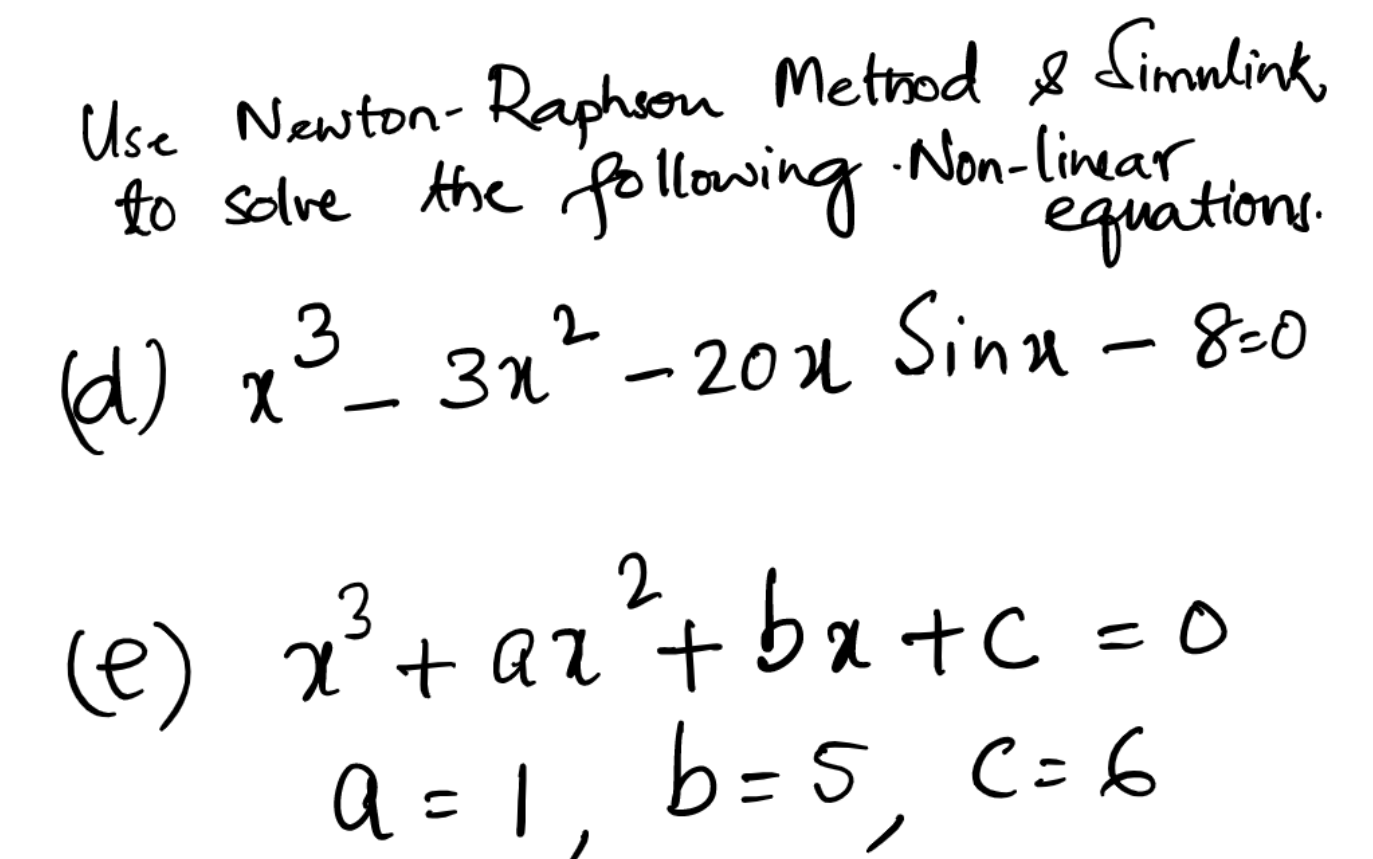 Use Newton-Raphson Method & Simulink
to solve the following Non-linear
equations.
(d) x³ - 3x² - 20x Sinx - 8=0
(e) x³ + ax² + bx + c = 0
a = 1, b = 5, c = 6